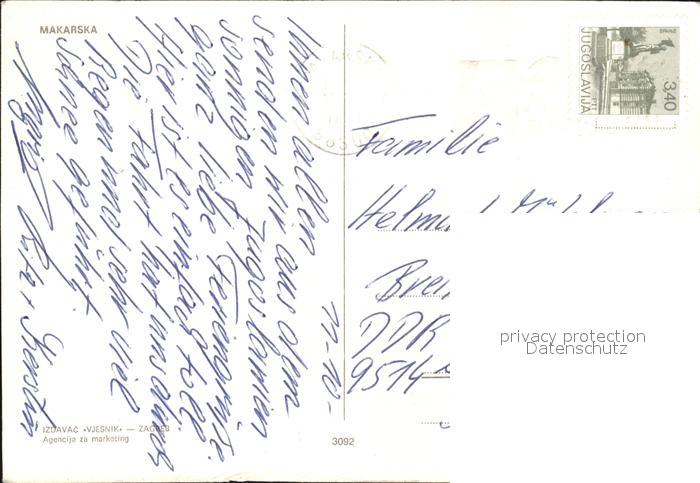 MAKARSKA
11.10.
Ihnen allen
senden wir aus dem
sonnigen Jugoslawien
ganz liebe Feriengrüße.
Hier ist es einfach toll.
Die Fahrt hat uns durch
Regen und sehr viel
Schnee geführt.
Rita + Kerstin
IZDAVAČ »VJESNIK« — ZAGREB
Agencija za marketing
3092
JUGOSLAVIJA
3.40
PTT
Familie
DDR
9514
privacy protection
Datenschutz